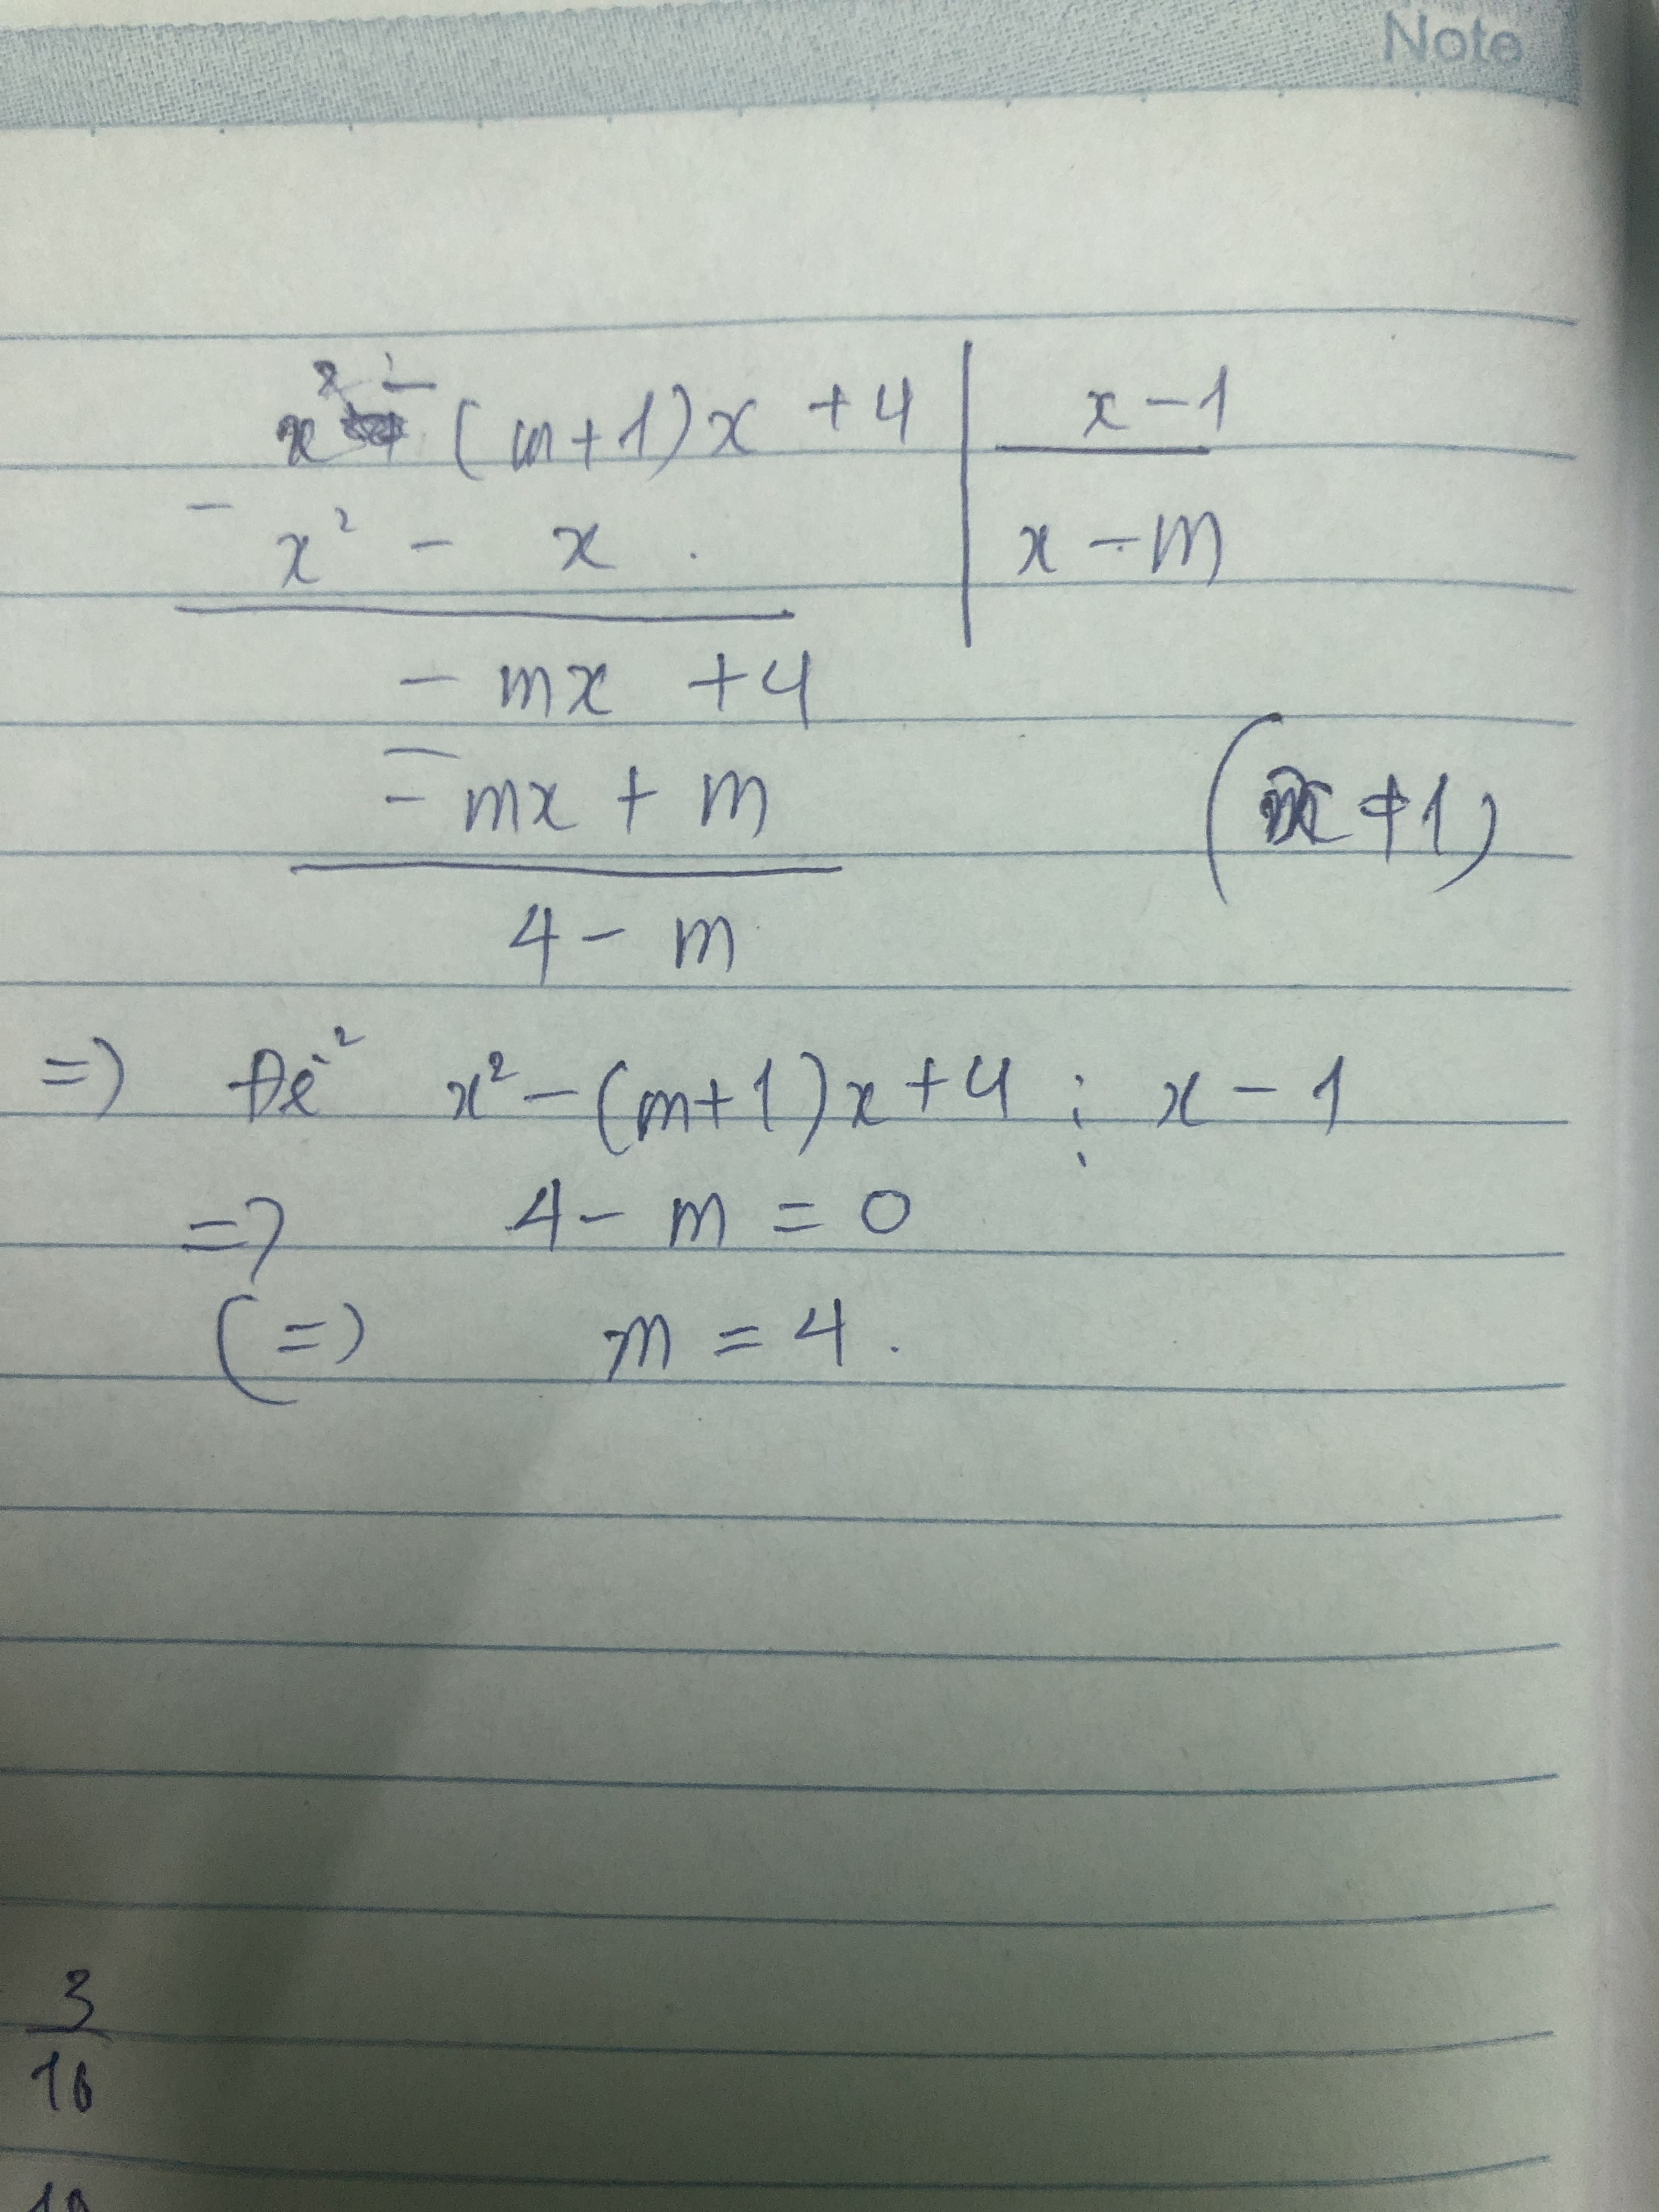 Note
x² - (m+1)x +4 | x-1
- x² - x | x - m
- mx +4
- - mx + m (x ≠ 1)
4 - m
=) Để x² - (m+1)x +4 ⋮ x - 1
=> 4 - m = 0
(=) m = 4.
3